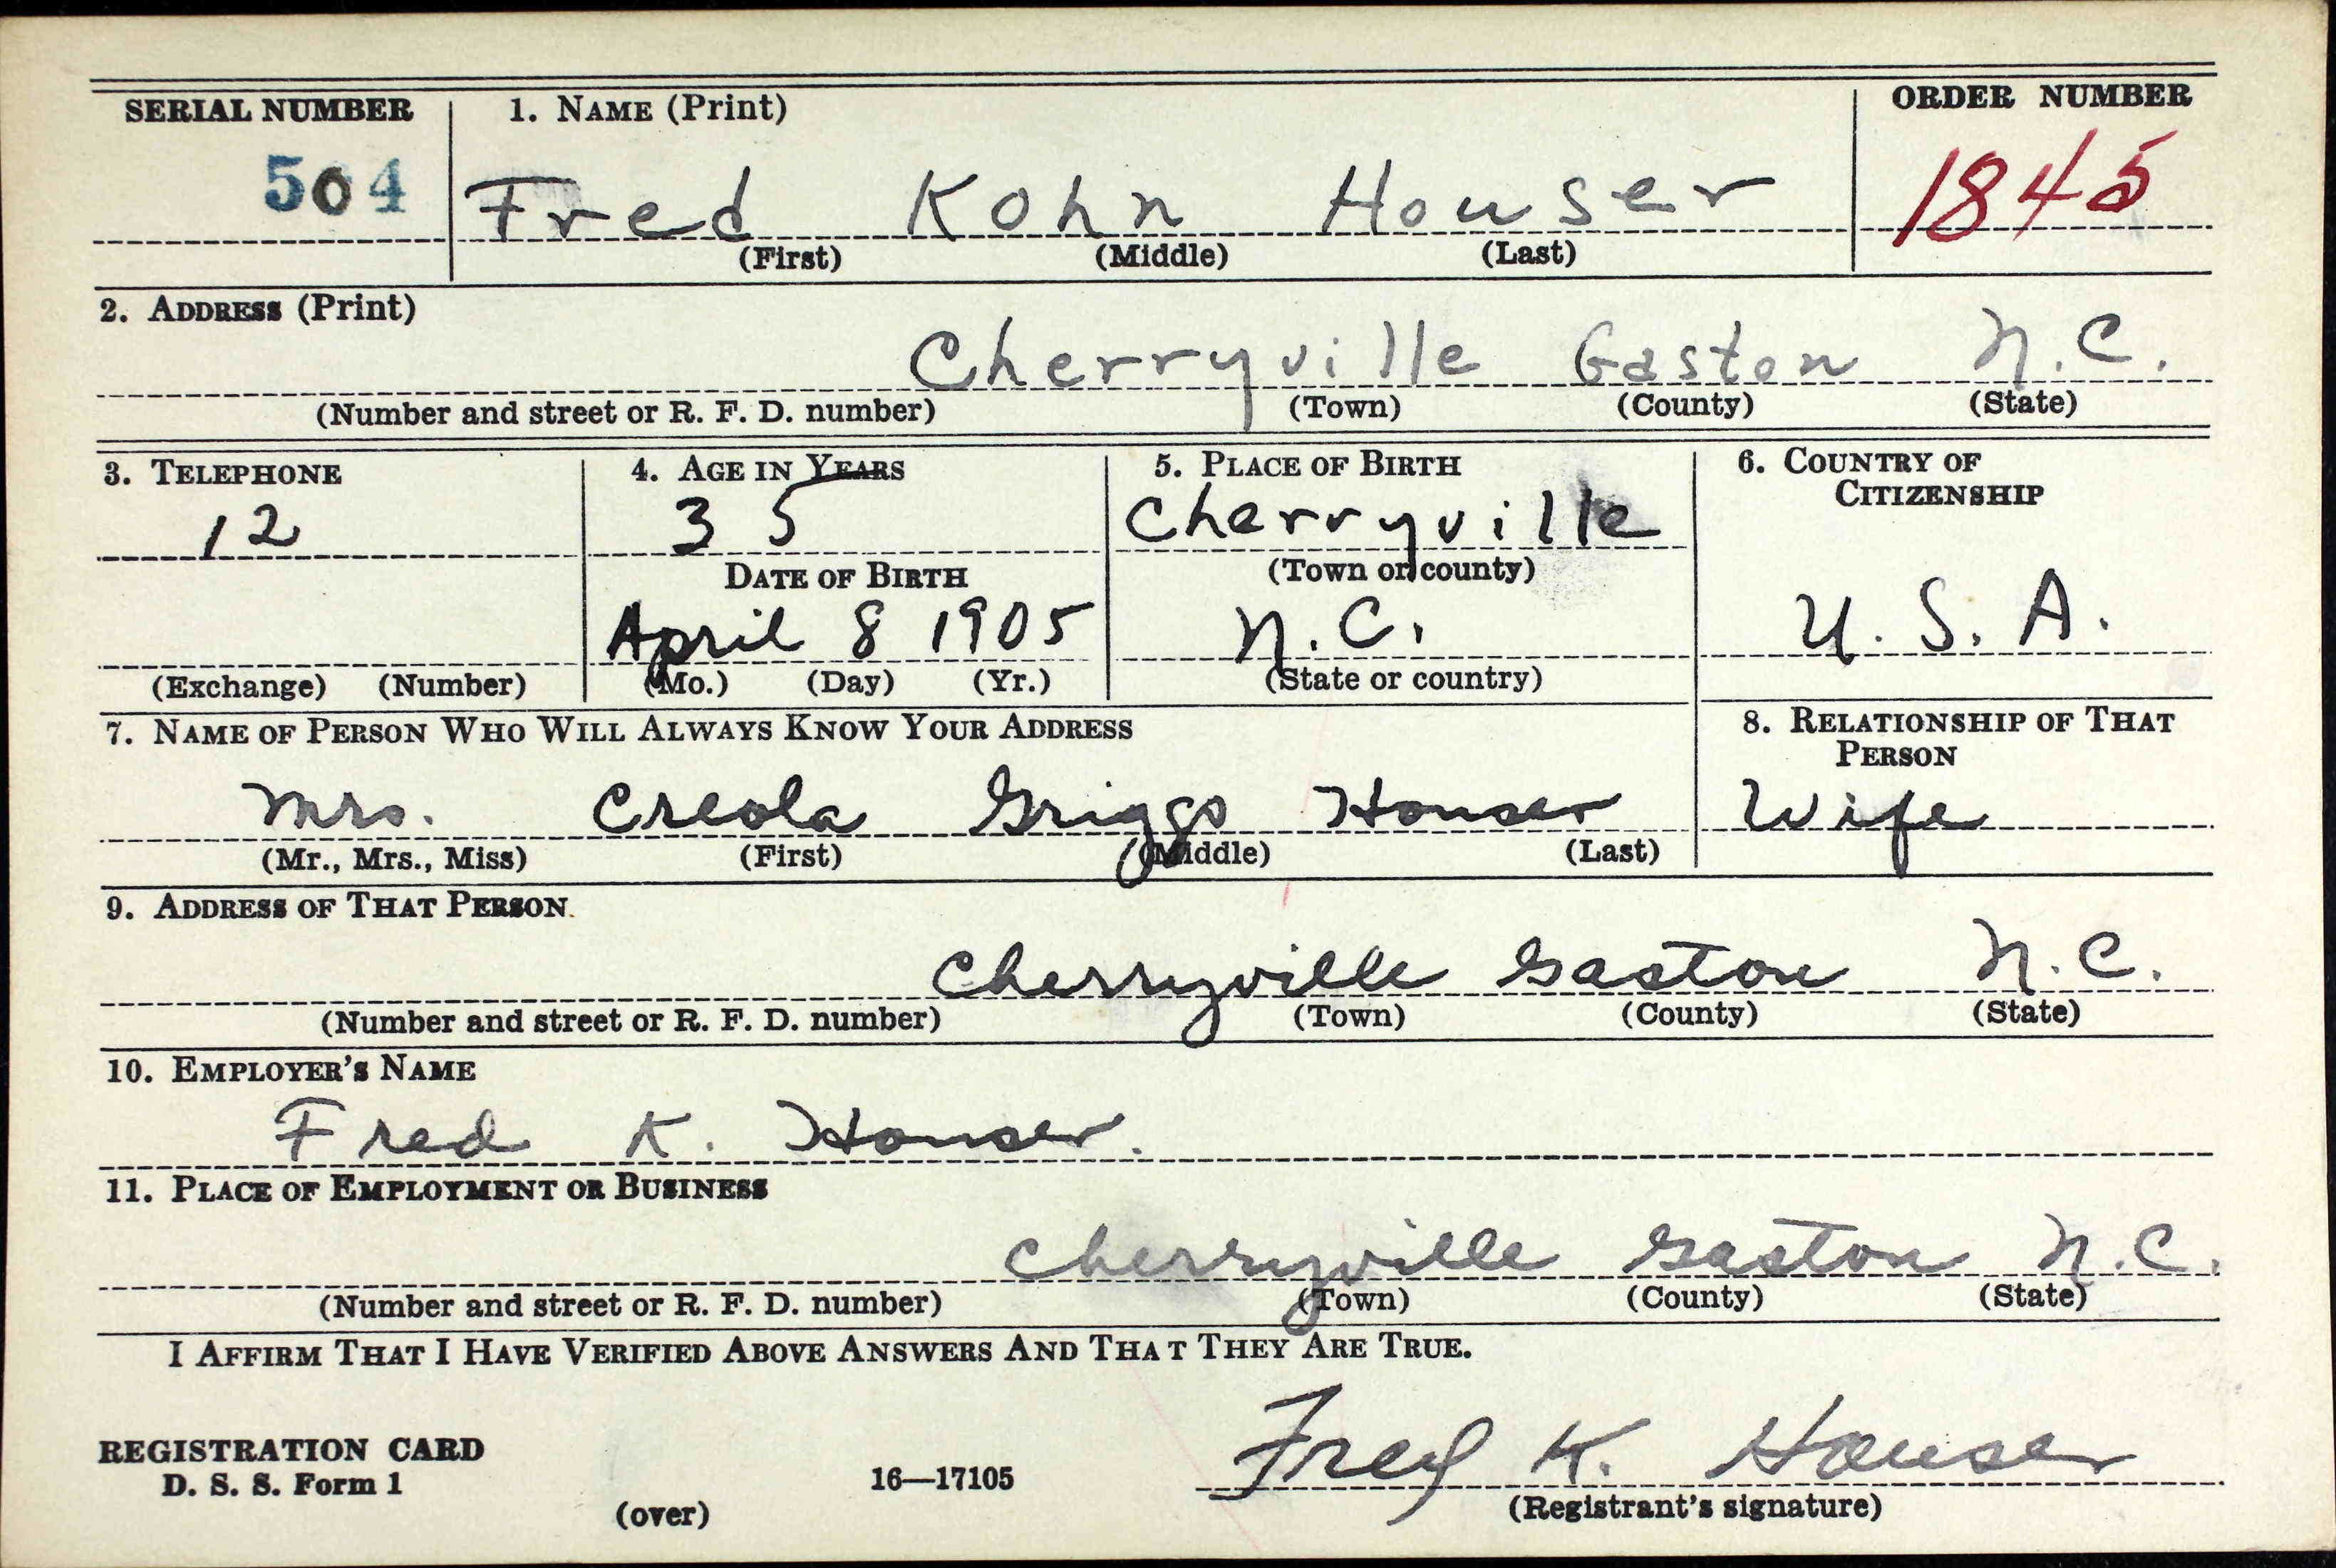 SERIAL NUMBER 1. NAME (Print) ORDER NUMBER
504 Fred Kohn Houser 1845
(First) (Middle) (Last)
2. ADDRESS (Print)
Cherryville Gaston N.C.
(Number and street or R. F. D. number) (Town) (County) (State)
3. TELEPHONE 4. AGE IN YEARS 5. PLACE OF BIRTH 6. COUNTRY OF CITIZENSHIP
12 35 Cherryville
DATE OF BIRTH (Town or county)
April 8 1905 N.C. U.S.A.
(Exchange) (Number) (Mo.) (Day) (Yr.) (State or country)
7. NAME OF PERSON WHO WILL ALWAYS KNOW YOUR ADDRESS 8. RELATIONSHIP OF THAT PERSON
Mrs. Creola Griggs Houser Wife
(Mr., Mrs., Miss) (First) (Middle) (Last)
9. ADDRESS OF THAT PERSON
Cherryville Gaston N.C.
(Number and street or R. F. D. number) (Town) (County) (State)
10. EMPLOYER'S NAME
Fred K. Houser.
11. PLACE OF EMPLOYMENT OR BUSINESS
Cherryville Gaston N.C.
(Number and street or R. F. D. number) (Town) (County) (State)
I AFFIRM THAT I HAVE VERIFIED ABOVE ANSWERS AND THAT THEY ARE TRUE.
REGISTRATION CARD
D. S. S. Form 1 16—17105 Fred K. Houser
(over) (Registrant's signature)